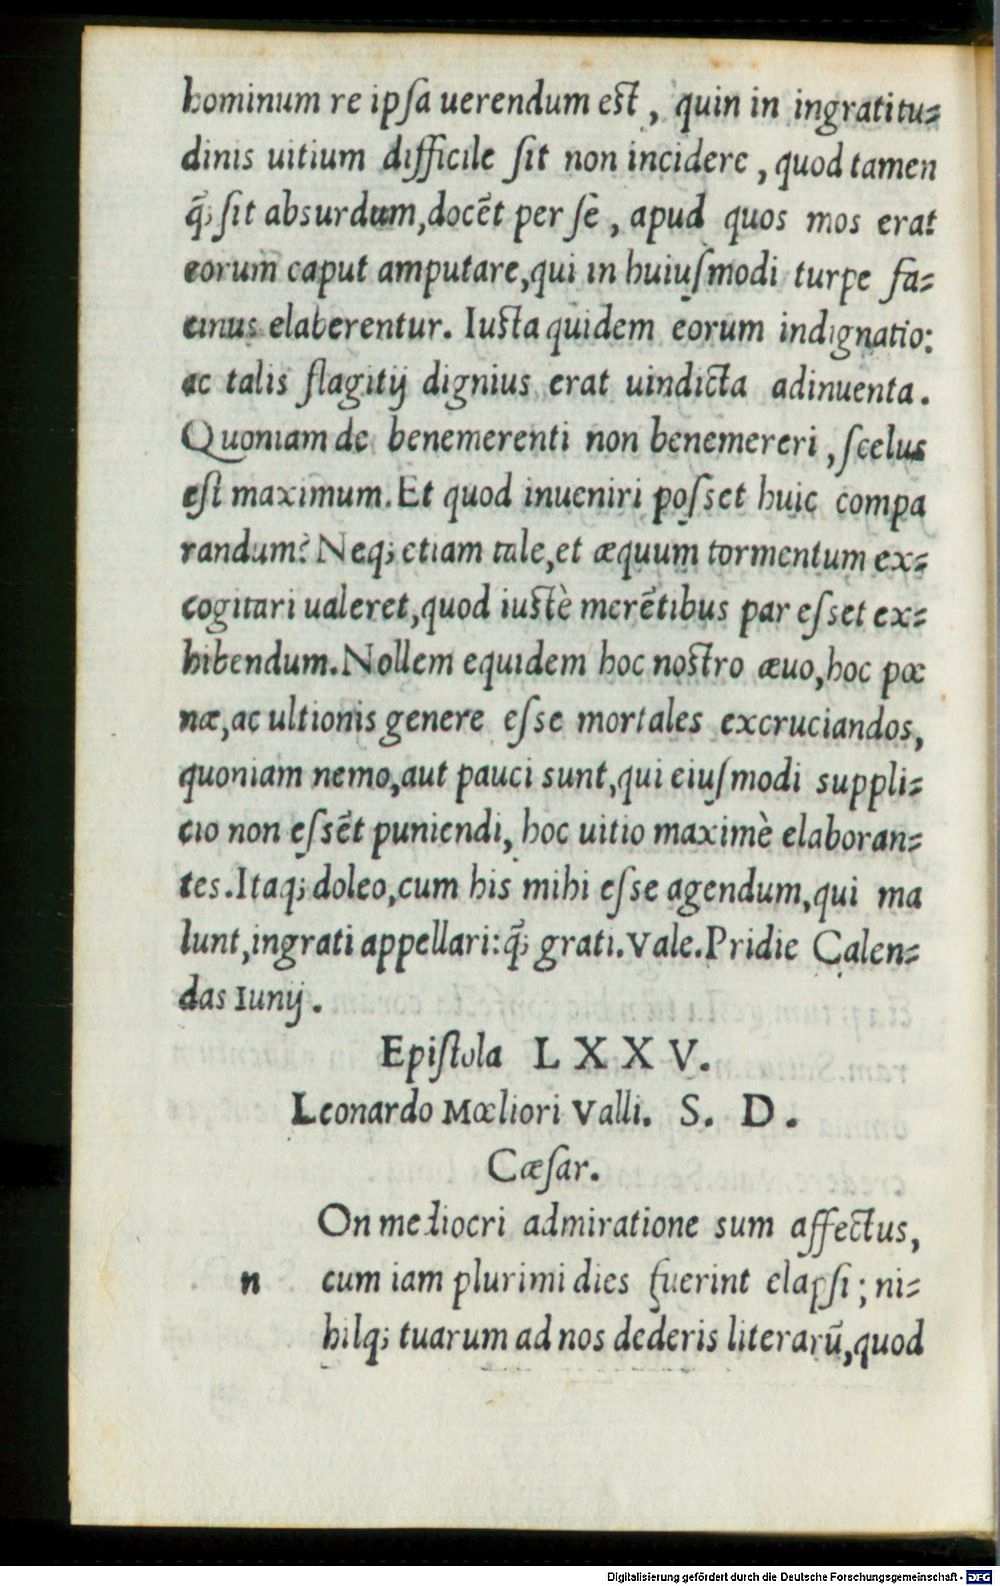 hominum re ipſa uerendum est, quin in ingratitu⸗
dinis uitium difficile ſit non incidere, quod tamen
q̃; ſit absurdum, docẽt per ſe, apud quos mos erat
eorum caput amputare, qui in huiuſmodi turpe fa⸗
cinus elaberentur. Iusta quidem eorum indignatio:
ac talis flagitij dignius erat uindicta adinuenta.
Quoniam de benemerenti non benemereri, ſcelus
eſt maximum. Et quod inueniri poſset huic compa
randum? Neq; etiam tale, et æquum tormentum ex⸗
cogitari ualeret, quod iustè merẽtibus par eſset ex⸗
hibendum. Nollem equidem hoc nostro æuo, hoc pœ
næ, ac ultionis genere eſse mortales excruciandos,
quoniam nemo, aut pauci sunt, qui eiuſmodi suppli⸗
cio non eſsẽt puniendi, hoc uitio maximè elaboran⸗
tes. Itaq; doleo, cum his mihi eſse agendum, qui ma
lunt, ingrati appellari: q̃; grati. Vale. Pridie Calen⸗
das Iunij.
Epiſtola LXXV.
Leonardo Mœliori Valli. S. D.
Cæſar.
On mediocri admiratione sum affectus,
n cum iam plurimi dies fuerint elapſi; ni⸗
hilq; tuarum ad nos dederis literarũ, quod
Digitalisierung gefördert durch die Deutsche Forschungsgemeinschaft - DFG